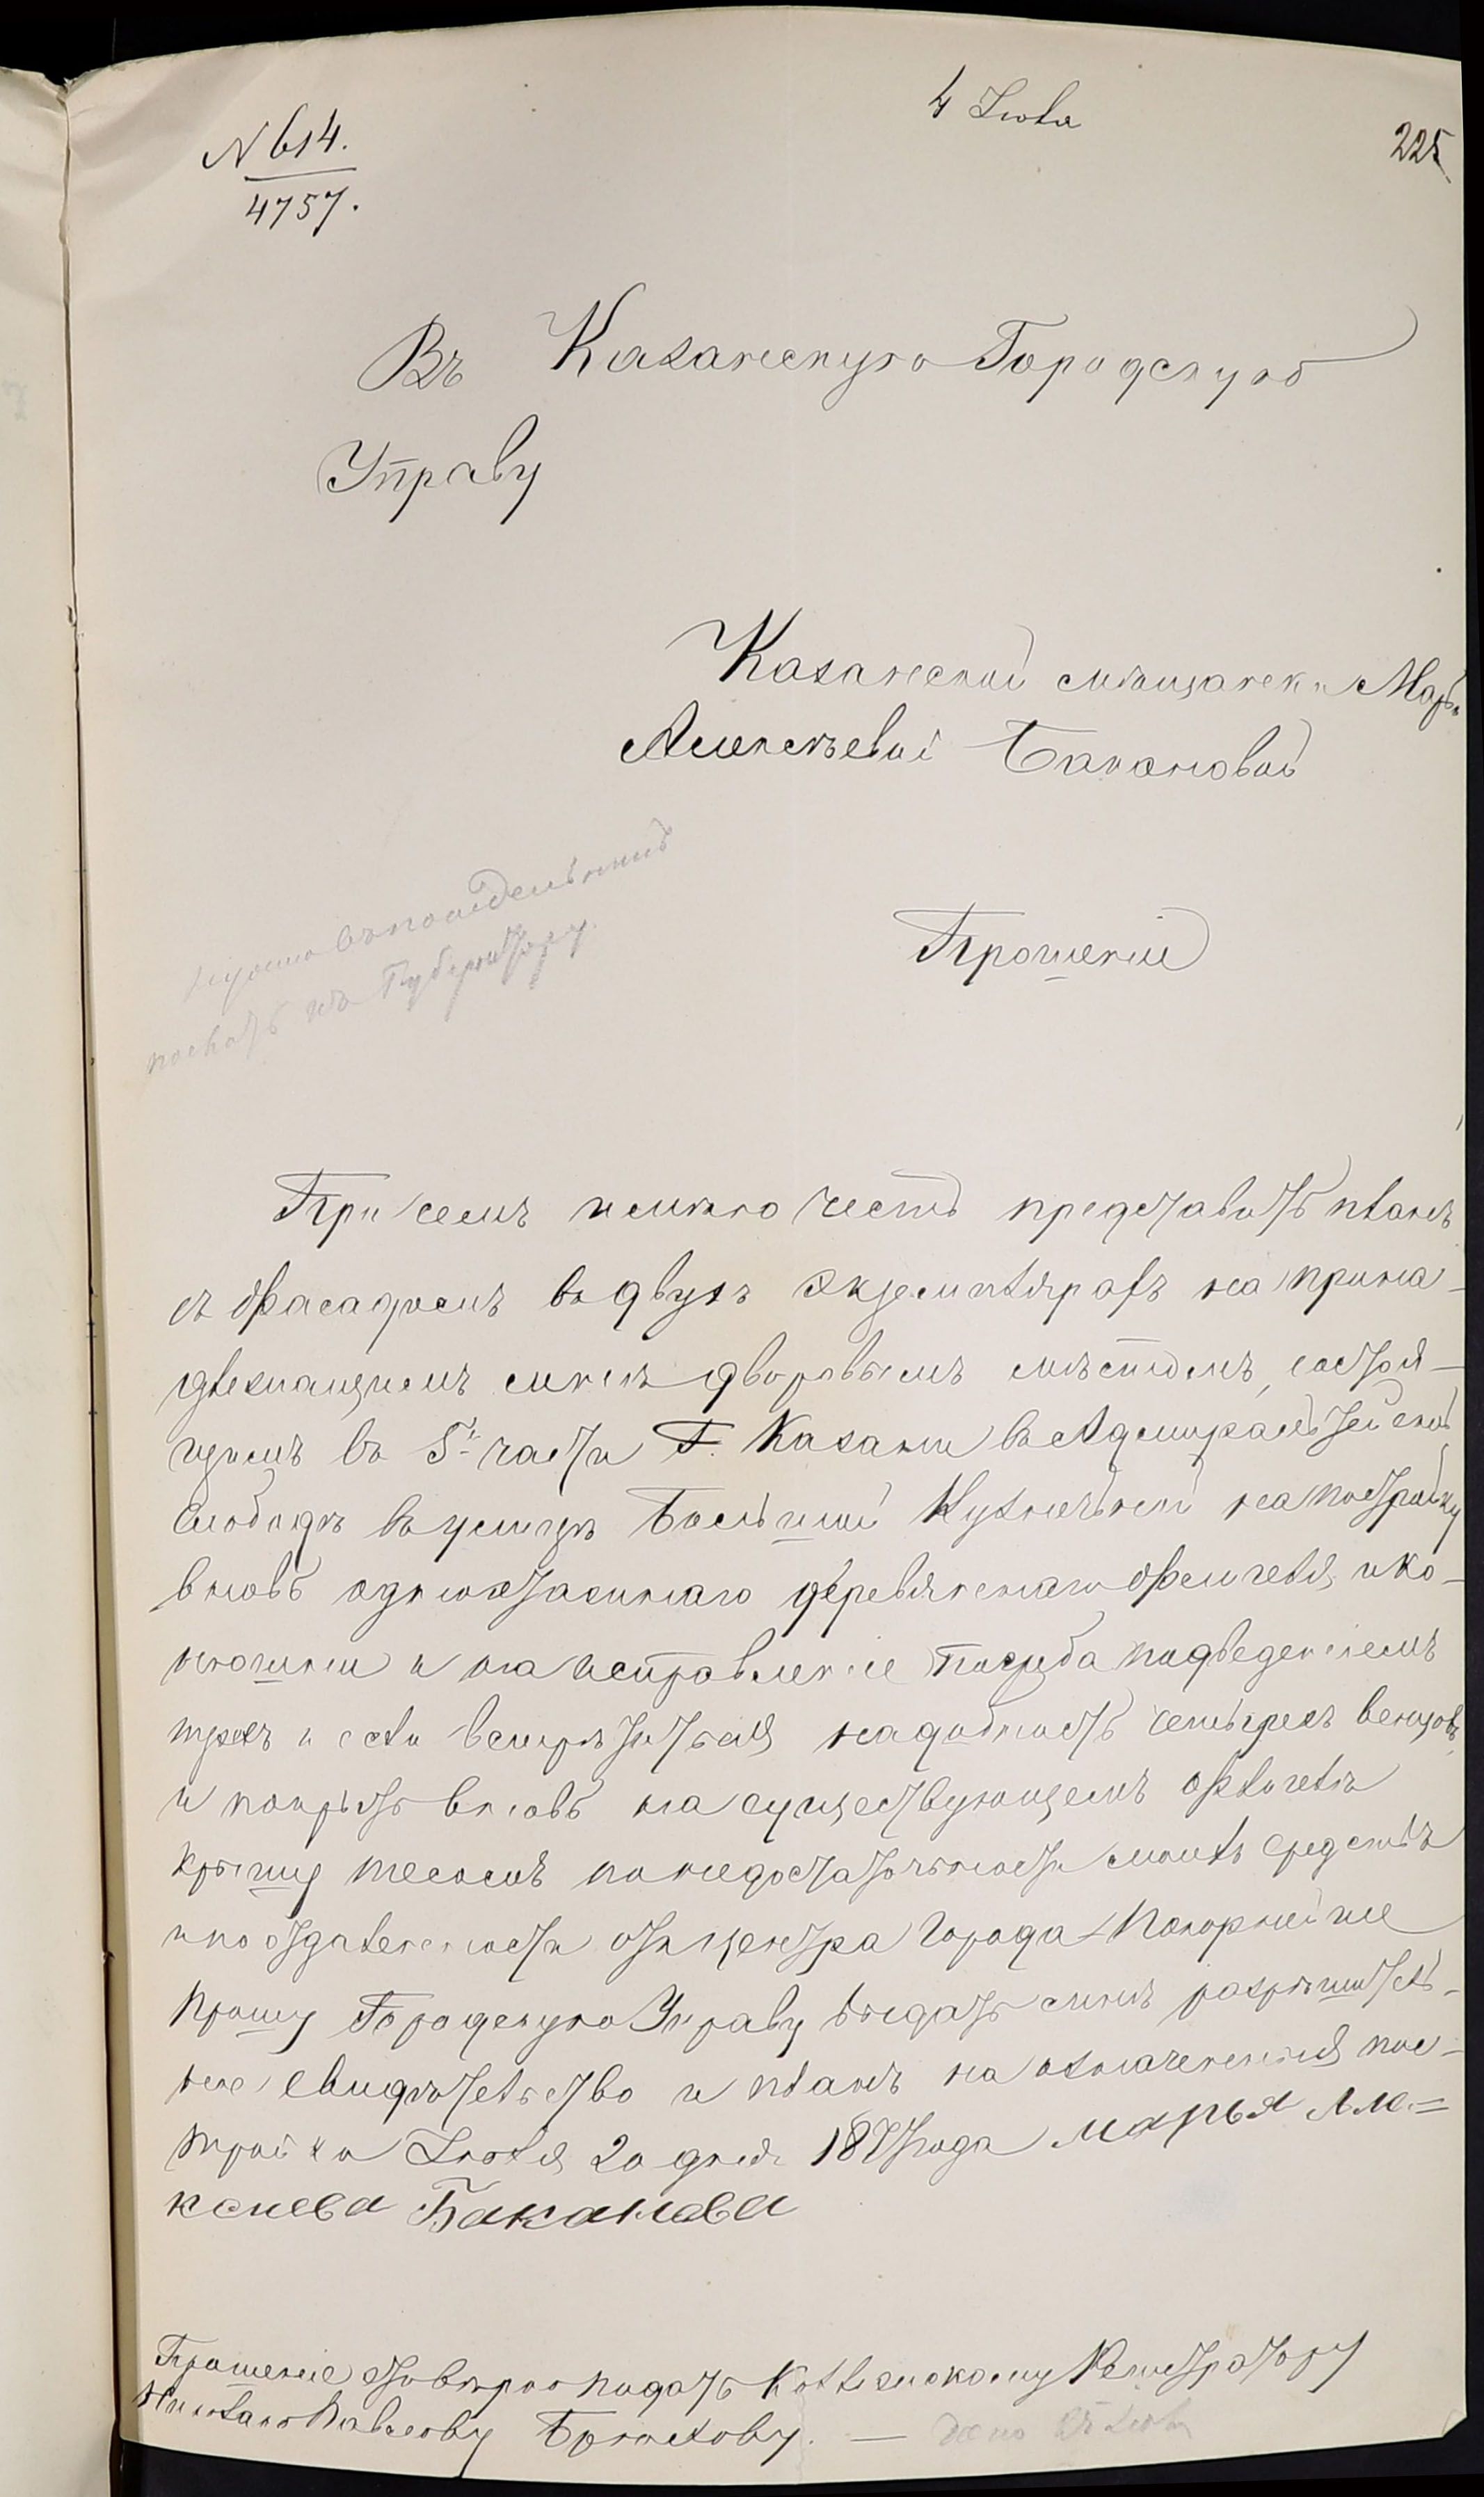 4 Іюля
225
№ 614.
4757.
Въ Казанскую Городскую
Управу
Казанской мѣщански Марьи
Алексѣевой Бакановой
Прошеніе
Нужно въ понедельникъ
послать къ Губернатору.
При семъ имѣю честь представить планъ
съ фасадомъ въ двухъ экземплярахъ на прина-
длежащемъ мнѣ дворовымъ мѣстомъ, состоя-
щимъ въ 5й части Г. Казани въ Адмиралтейской
слободѣ въ улицѣ Большой Кузнечной на постройку
вновь одноэтажнаго деревяннаго флигеля, и ко-
нюшни и на исправленіе погреба подведеніемъ
трехъ и если встрѣтится надобность четырехъ венцовъ,
и покрыть вновь на существующемъ флигелѣ
крышу тесомъ по недостаточности моихъ средствъ
и по отдаленности отъ центра города Покорнѣйше
прошу Городскую Управу выдать мнѣ разрѣшитель-
ное свидѣтельство и планъ на означенныя пос-
тройки Іюля 20 дня 187 года Марья Але=
ксиева Баканова
Прошеніе это вѣрю подать Коллежскому Регистратору
Николаю Павлову Брюхову. —